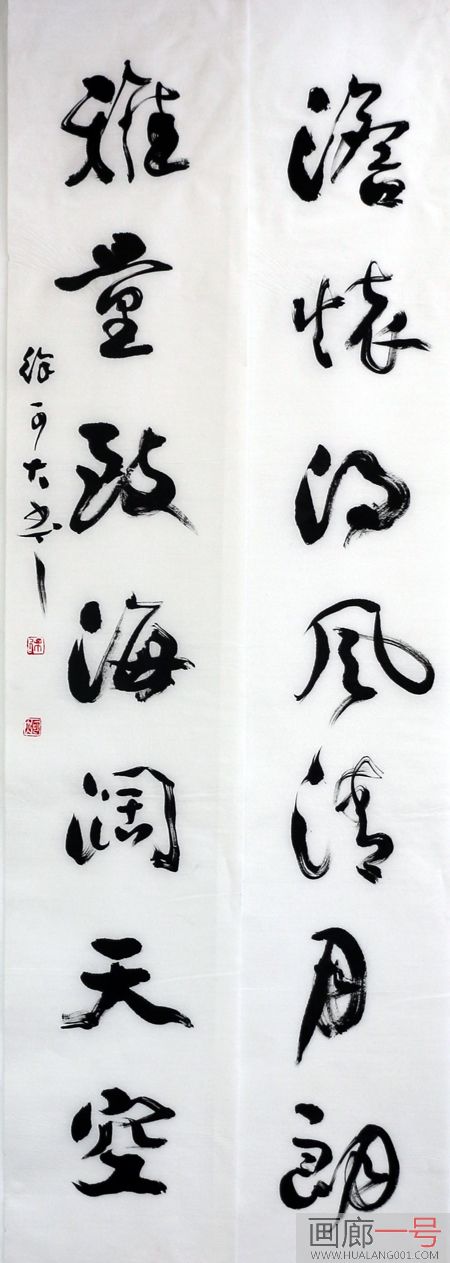 澹懷得风清月朗
雅量致海濶天空
徐可大书
画廊一号
WWW.HUALANG001.COM